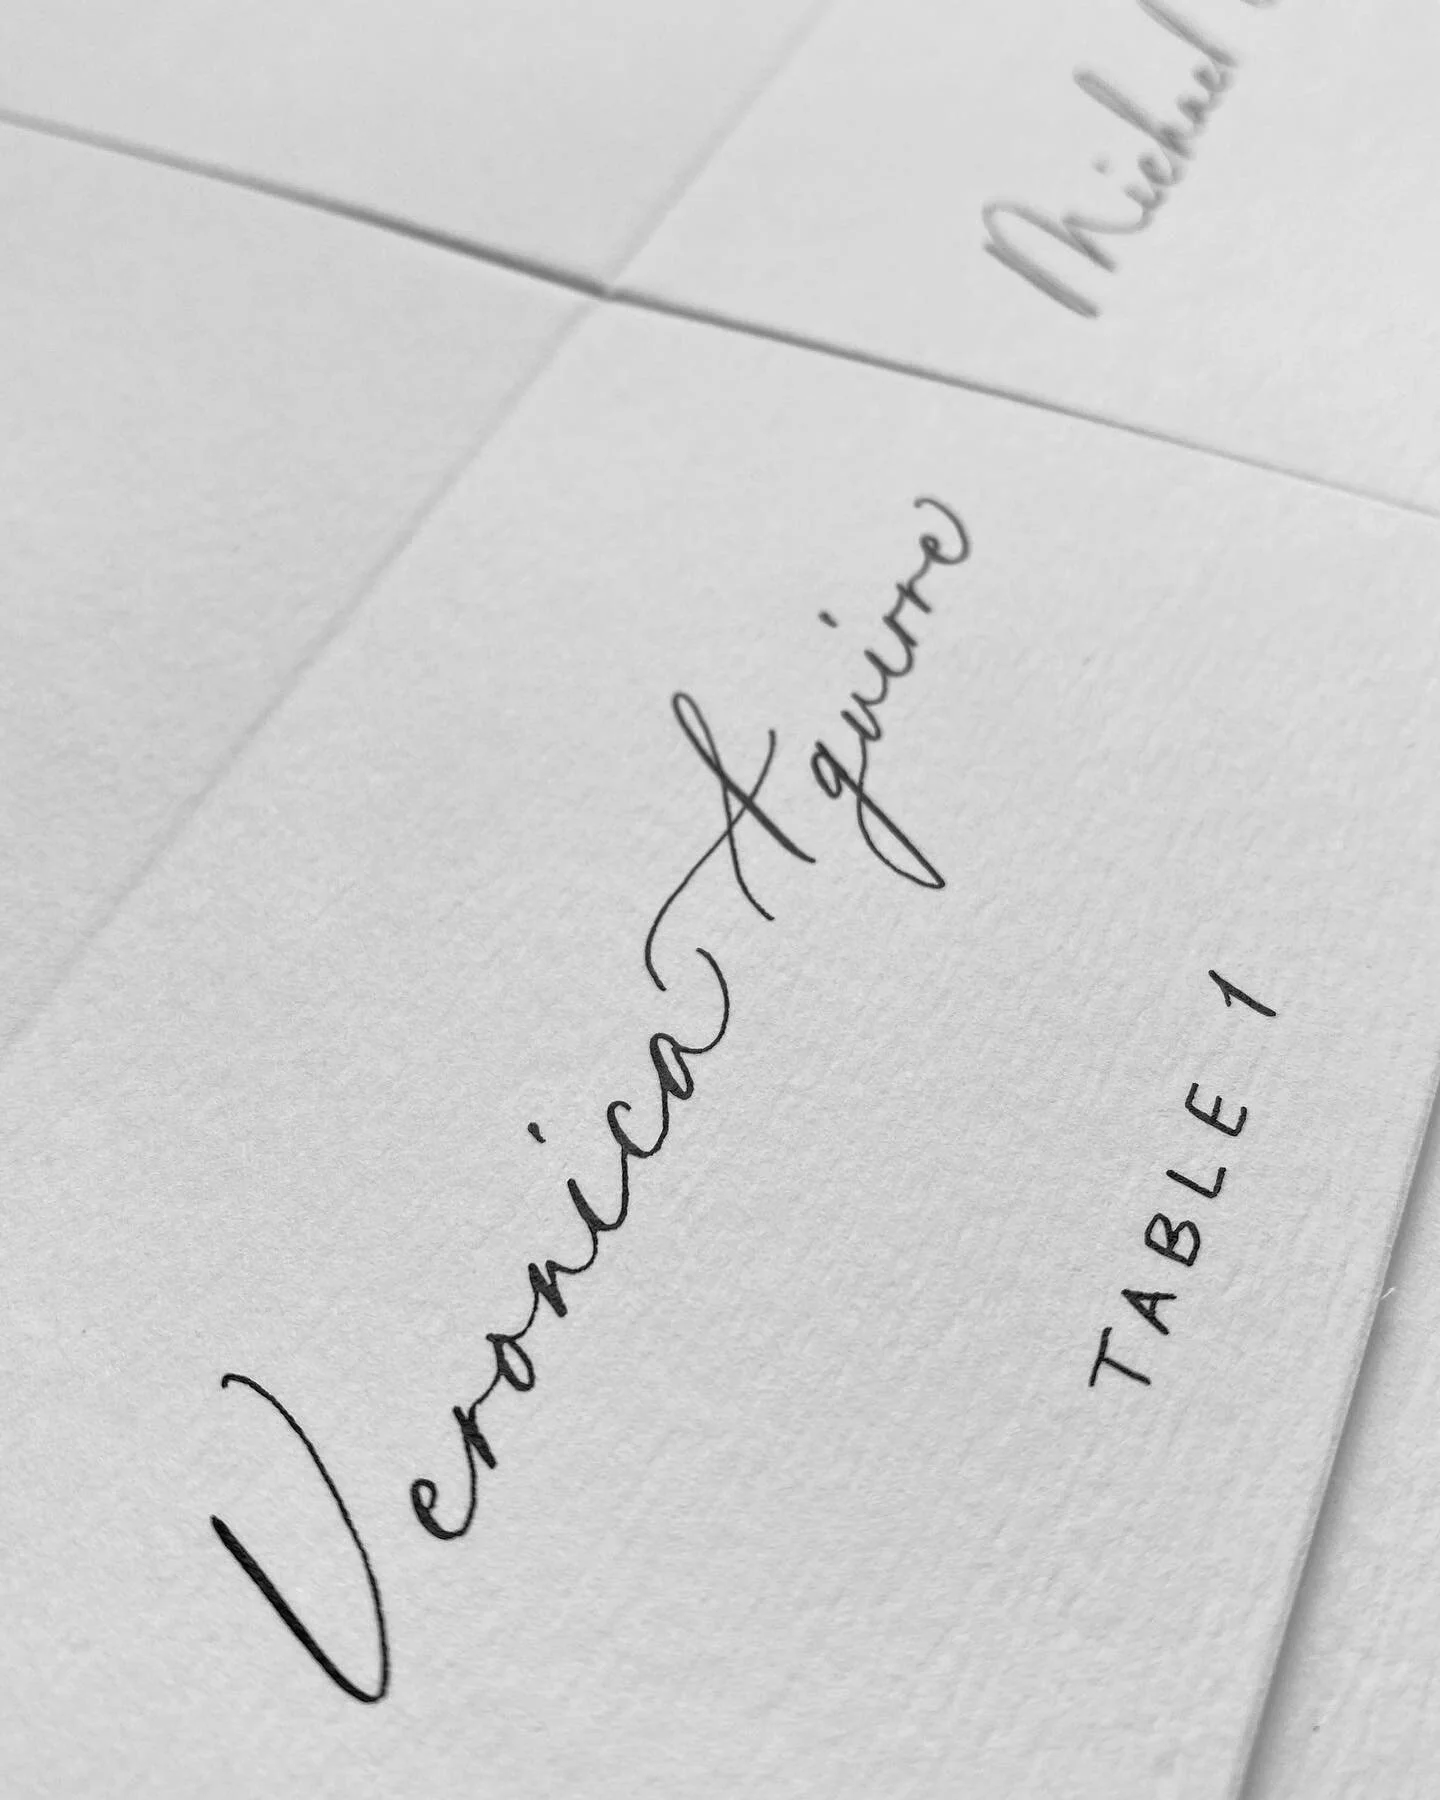 Michael
Veronica Aguirre
TABLE 1